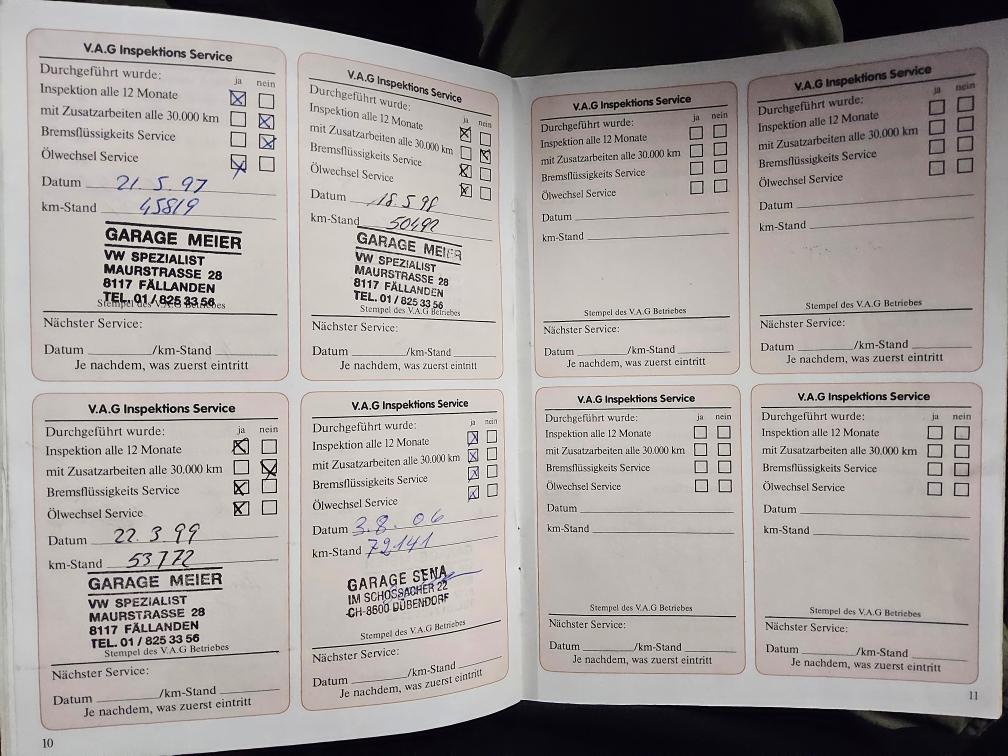 V.A.G Inspektions Service
Durchgeführt wurde: ja nein
Inspektion alle 12 Monate
mit Zusatzarbeiten alle 30.000 km
Bremsflüssigkeits Service
Ölwechsel Service
Datum 21. 5. 97
km-Stand 45819
GARAGE MEIER
VW SPEZIALIST
MAURSTRASSE 28
8117 FÄLLANDEN
TEL. 01 / 825 33 56
Stempel des V.A.G Betriebes
Nächster Service:
Datum /km-Stand
Je nachdem, was zuerst eintritt
V.A.G Inspektions Service
Durchgeführt wurde: ja nein
Inspektion alle 12 Monate
mit Zusatzarbeiten alle 30.000 km
Bremsflüssigkeits Service
Ölwechsel Service
Datum 18. 5 98
km-Stand 50492
GARAGE MEIER
VW SPEZIALIST
MAURSTRASSE 28
8117 FÄLLANDEN
TEL. 01 / 825 33 56
Stempel des V.A.G Betriebes
Nächster Service:
Datum /km-Stand
Je nachdem, was zuerst eintritt
V.A.G Inspektions Service
Durchgeführt wurde: ja nein
Inspektion alle 12 Monate
mit Zusatzarbeiten alle 30.000 km
Bremsflüssigkeits Service
Ölwechsel Service
Datum 22. 3. 99
km-Stand 53772
GARAGE MEIER
VW SPEZIALIST
MAURSTRASSE 28
8117 FÄLLANDEN
TEL. 01 / 825 33 56
Stempel des V.A.G Betriebes
Nächster Service:
Datum /km-Stand
Je nachdem, was zuerst eintritt
V.A.G Inspektions Service
Durchgeführt wurde: ja nein
Inspektion alle 12 Monate
mit Zusatzarbeiten alle 30.000 km
Bremsflüssigkeits Service
Ölwechsel Service
Datum 3. 8. 06
km-Stand 72141
GARAGE SENA
IM SCHOSSACHER 22
CH-8600 DÜBENDORF
Stempel des V.A.G Betriebes
Nächster Service:
Datum /km-Stand
Je nachdem, was zuerst eintritt
10
V.A.G Inspektions Service
Durchgeführt wurde: ja nein
Inspektion alle 12 Monate
mit Zusatzarbeiten alle 30.000 km
Bremsflüssigkeits Service
Ölwechsel Service
Datum
km-Stand
Stempel des V.A.G Betriebes
Nächster Service:
Datum /km-Stand
Je nachdem, was zuerst eintritt
V.A.G Inspektions Service
Durchgeführt wurde: ja nein
Inspektion alle 12 Monate
mit Zusatzarbeiten alle 30.000 km
Bremsflüssigkeits Service
Ölwechsel Service
Datum
km-Stand
Stempel des V.A.G Betriebes
Nächster Service:
Datum /km-Stand
Je nachdem, was zuerst eintritt
V.A.G Inspektions Service
Durchgeführt wurde: ja nein
Inspektion alle 12 Monate
mit Zusatzarbeiten alle 30.000 km
Bremsflüssigkeits Service
Ölwechsel Service
Datum
km-Stand
Stempel des V.A.G Betriebes
Nächster Service:
Datum /km-Stand
Je nachdem, was zuerst eintritt
V.A.G Inspektions Service
Durchgeführt wurde: ja nein
Inspektion alle 12 Monate
mit Zusatzarbeiten alle 30.000 km
Bremsflüssigkeits Service
Ölwechsel Service
Datum
km-Stand
Stempel des V.A.G Betriebes
Nächster Service:
Datum /km-Stand
Je nachdem, was zuerst eintritt
11